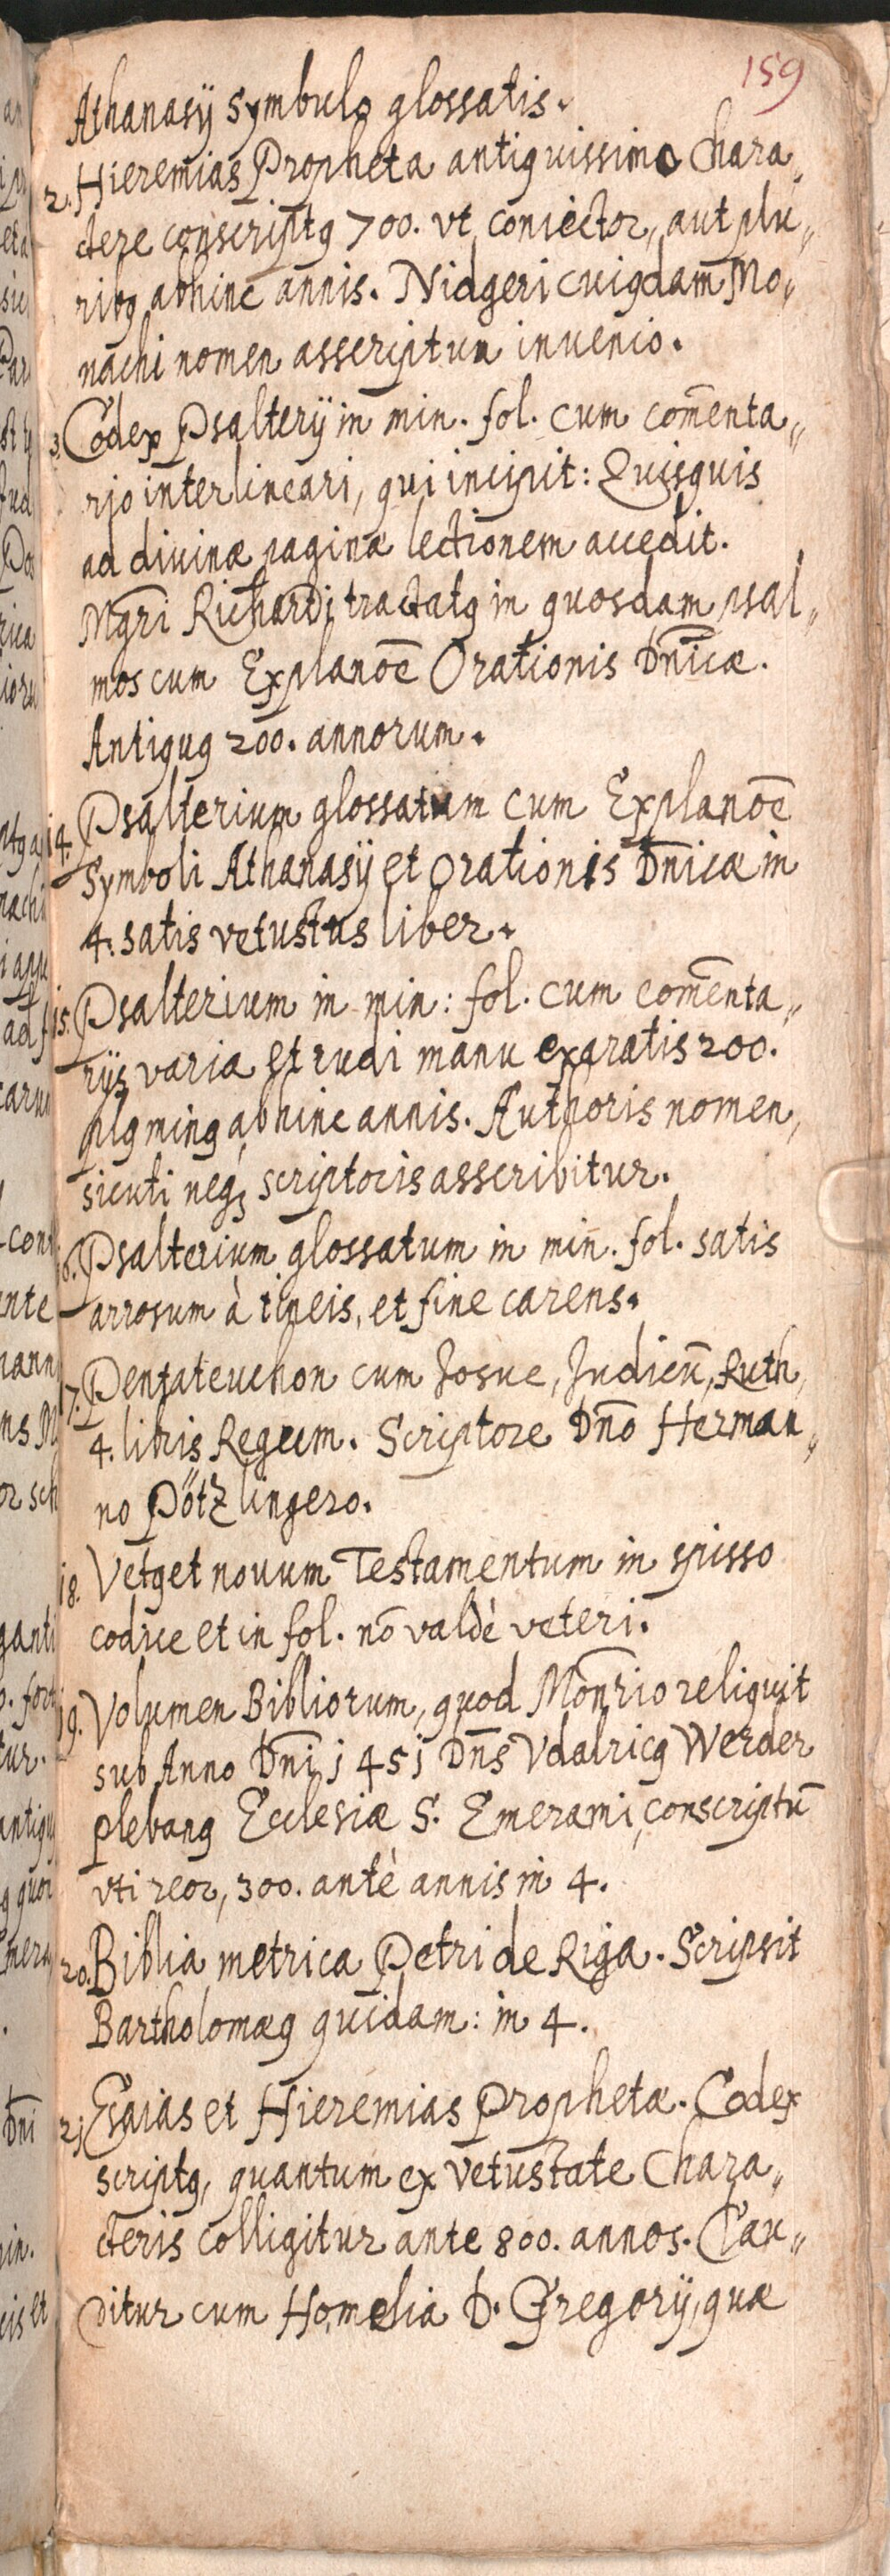 159
Athanasij Symbulo glossatis.
2. Hieremias Propheta antiquissimo Chara„
ctere conscriptꝯ 700. vt coniector, aut plu„
ribꝯ abhinc annis. Nidgeri cuiꝯdam Mo„
nachi nomen asscriptum inuenio.
3. Codex Psalterij in min. fol. cum com̄enta„
rio interlineari, qui incipit: Quisquis
ad diuinæ paginæ lectionem accedit.
Mḡri Richardi tractatꝯ in quosdam psal„
mos cum Explanōe Orationis Dn̄icæ.
Antiquꝯ 200. annorum.
14. Psalterium glossatum cum Explanōe
Symboli Athanasij et Orationis Dn̄icæ in
4. satis vetustus liber.
15. Psalterium in min: fol. cum com̄enta„
rijs varia et rudi manu exaratis 200.
plꝯ minꝯ abhinc annis. Authoris nomen,
sicuti neqꝫ scriptoris asscribitur.
6. Psalterium glossatum in min. fol. satis
arrosum à tineis, et fine carens.
7. Pentateuchon cum Josue, Judicū, Ruth,
4. libris Regum. Scriptore Dn̄o Herman„
no Pötzlingero.
18. Vetꝯ et nouum Testamentum in spisso
codice et in fol. nō valdè veteri.
19. Volumen Bibliorum, quod Mon̄rio reliquit
sub Anno Dn̄i j45j Dn̄s Vdalricꝯ Werder
plebanꝯ Ecclesiæ S. Emerami, conscriptū
vti reor, 300. antè annis in 4.
20. Biblia metrica Petri de Riga. Scripsit
Bartholomæꝯ quidam: in 4.
2j Esaias et Hieremias Prophetæ. Codex
scriptꝯ, quantum ex vetustate Chara„
cteris colligitur ante 800. annos. Clau„
ditur cum Homelia D. Gregorij, quæ